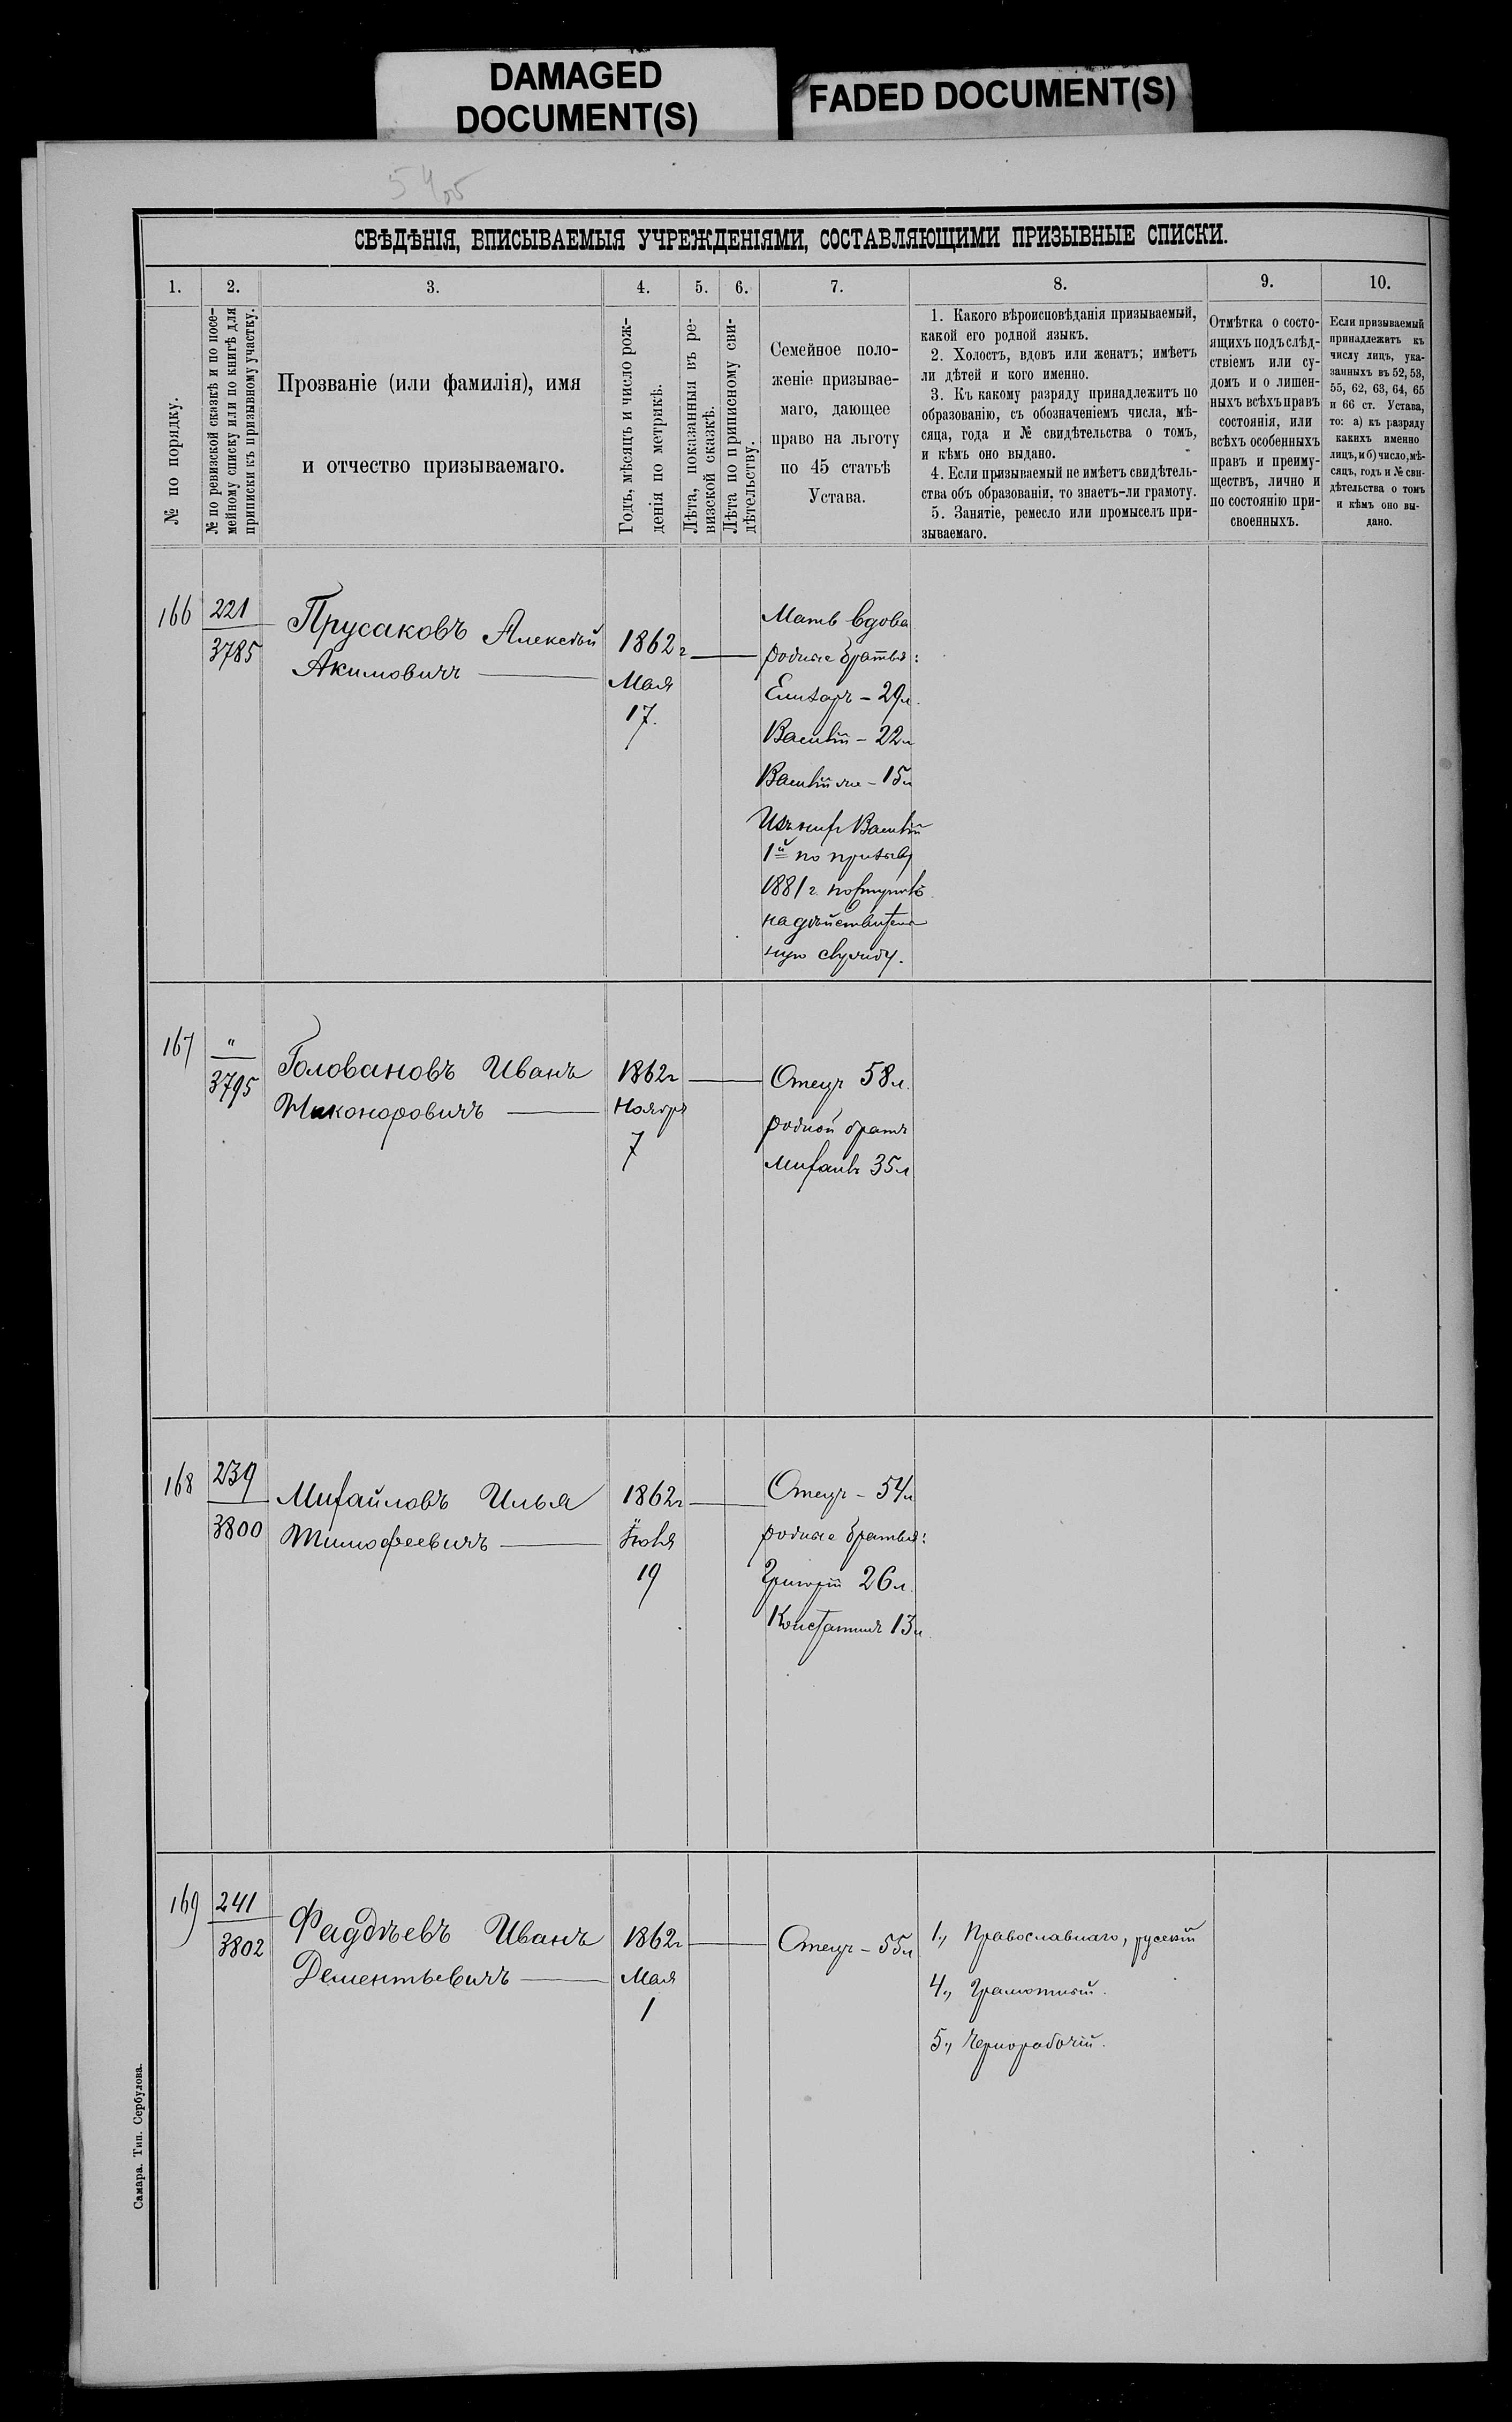 DAMAGED
DOCUMENT(S)
FADED DOCUMENT(S)
СВѢДѢНІЯ, ВПИСЫВАЕМЫЯ УЧРЕЖДЕНІЯМИ, СОСТАВЛЯЮЩИМИ ПРИЗЫВНЫЕ СПИСКИ.
1.
2.
3.
4.
5.
6.
7.
8.
9.
10.
№ по порядку.
№ по ревизской сказкѣ и по посе-
мейному списку или по книгѣ для
приписки къ призывному участку.
Прозваніе (или фамилія), имя
и отчество призываемаго.
Годъ, мѣсяцъ и число рож-
денія по метрикѣ.
Лѣта, показанныя въ ре-
визской сказкѣ.
Лѣта по приписному сви-
дѣтельству.
Семейное поло-
женіе призывае-
маго, дающее
право на льготу
по 45 статьѣ
Устава.
1. Какого вѣроисповѣданія призываемый,
какой его родной языкъ.
2. Холостъ, вдовъ или женатъ; имѣетъ
ли дѣтей и кого именно.
3. Къ какому разряду принадлежитъ по
образованію, съ обозначеніемъ числа, мѣ-
сяца, года и № свидѣтельства о томъ,
и кѣмъ оно выдано.
4. Если призываемый не имѣетъ свидѣтель-
ства объ образованіи, то знаетъ-ли грамоту.
5. Занятіе, ремесло или промыселъ при-
зываемаго.
Отмѣтка о состо-
ящихъ подъ слѣд-
ствіемъ или су-
домъ и о лишен-
ныхъ всѣхъ правъ
состоянія, или
всѣхъ особенныхъ
правъ и преиму-
ществъ, лично и
по состоянію при-
своенныхъ.
Если призываемый
принадлежитъ къ
числу лицъ, ука-
занныхъ въ 52, 53,
55, 62, 63, 64, 65
и 66 ст. Устава,
то: а) къ разряду
какихъ именно
лицъ, и б) число, мѣ-
сяцъ, годъ и № сви-
дѣтельства о томъ
и кѣмъ оно вы-
дано.
166
221
3785
Прусаковъ Алексѣй
Акимовичъ
1862 г
Мая
17.
Мать вдова
родные братья:
Елизаръ - 29 л.
Василій - 22 л
Василій же - 15 л
Изъ них Василій
1й по призыву
1881 г. поступилъ
на дѣйствитель
ную службу.
167
"
3795
Головановъ Иванъ
Никоноровичъ
1862 г
Ноябр
7
Отецъ 58 л.
родной братъ
Михаилъ 35 л
168
239
3800
Михайловъ Илья
Тимофеевичъ
1862 г
Іюля
19
Отецъ - 54 л
родные братья:
Григорій 26 л.
Константинъ 13 л.
169
241
3802
Фаддѣевъ Иванъ
Дементьевичъ
1862 г
Мая
1
Отецъ - 55 л
1., Православнаго, русскій
4., Грамотный.
5., Чернорабочій.
Самара. Тип. Сербулова.